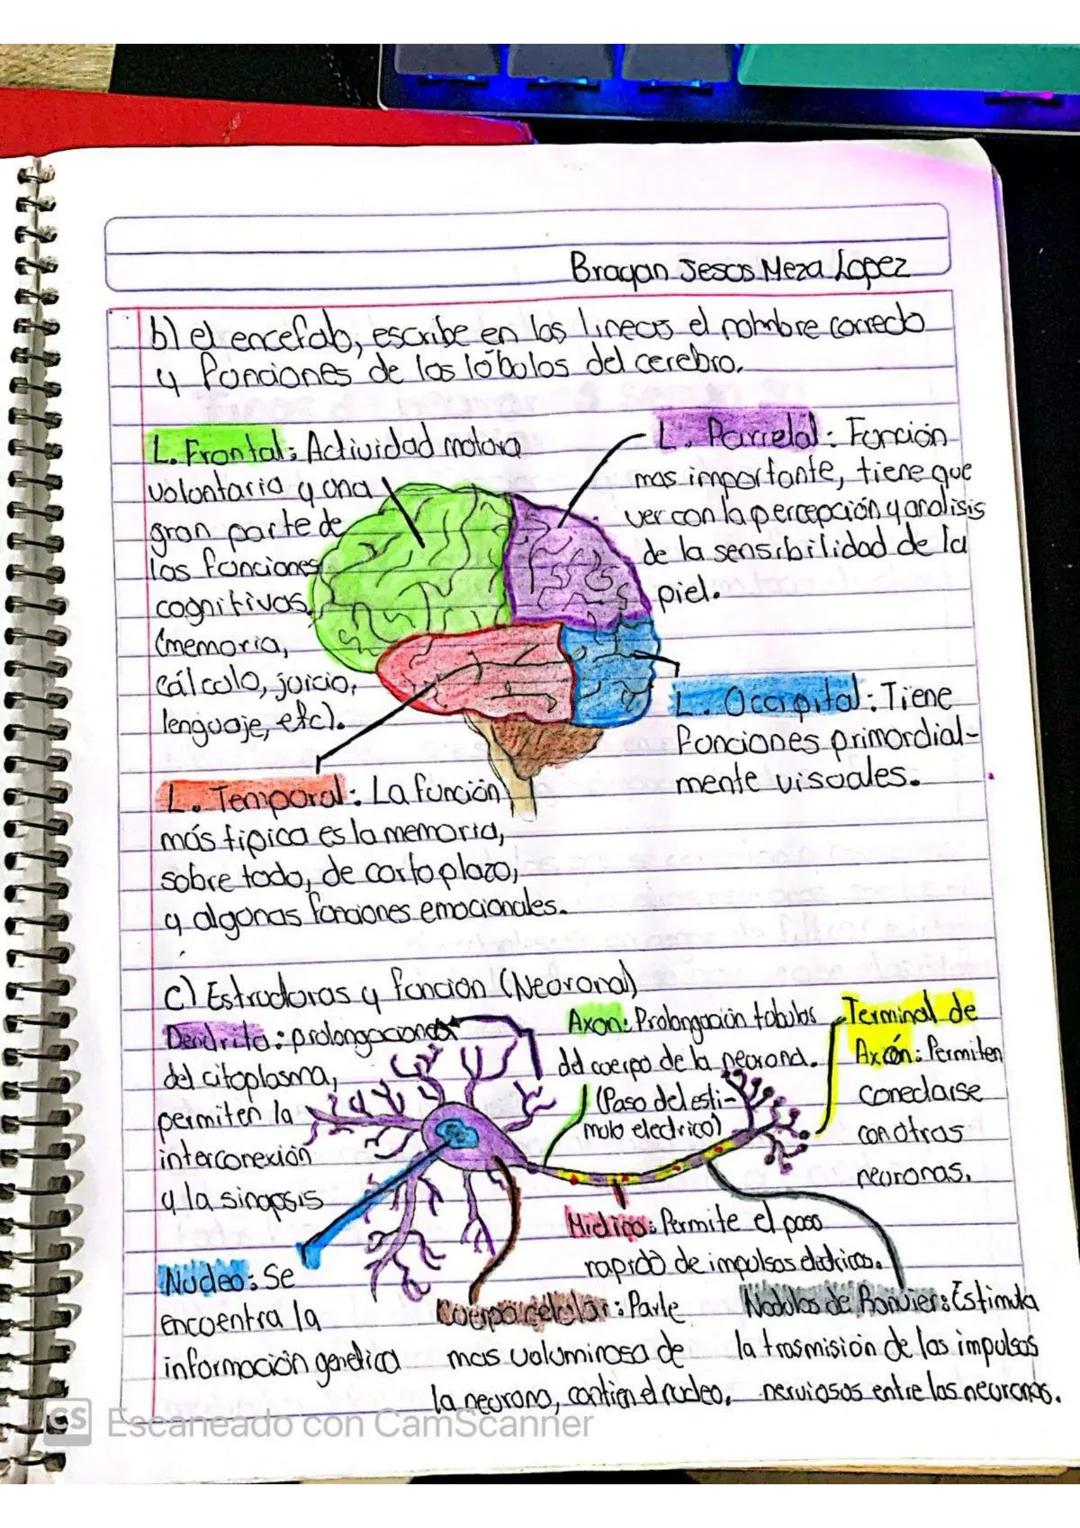 Brayan Jesus Meza Lopez
b) el encefalo, escribe en las lineas el nombre correcto
y funciones de los lóbulos del cerebro.
L. Frontal: Actividad motora
voluntaria y una
gran parte de
las funciones
cognitivas.
(memoria,
cálculo, juicio,
lenguaje, etc).
L. Parietal: Función
mas importante, tiene que
ver con la percepción y analisis
de la sensibilidad de la
piel.
L. Occipital: Tiene
funciones primordial-
mente visuales.
L. Temporal: La función
más tipica es la memoria,
sobre todo, de corto plazo,
y algunas funciones emocionales.
c) Estructuras y función (Neuronal)
Dendrita: prolongaciones
del citoplasma,
permiten la
interconexión
y la sinapsis
Axon: Prolongación tubulos
del cuerpo de la neurona.
(Paso del esti-
mulo electrico)
Terminal de
Axón: Permiten
conectarse
con otras
neuronas.
Mielina: Permite el paso
rapido de impulsos electricos.
Nucleo: Se
encuentra la
información genetica
Cuerpo celular: Parte
mas voluminosa de
la neurona, contien el nucleo.
Nodulos de Ranvier: Estimula
la trasmisión de los impulsos
nerviosos entre las neuronas.
CS Escaneado con CamScanner